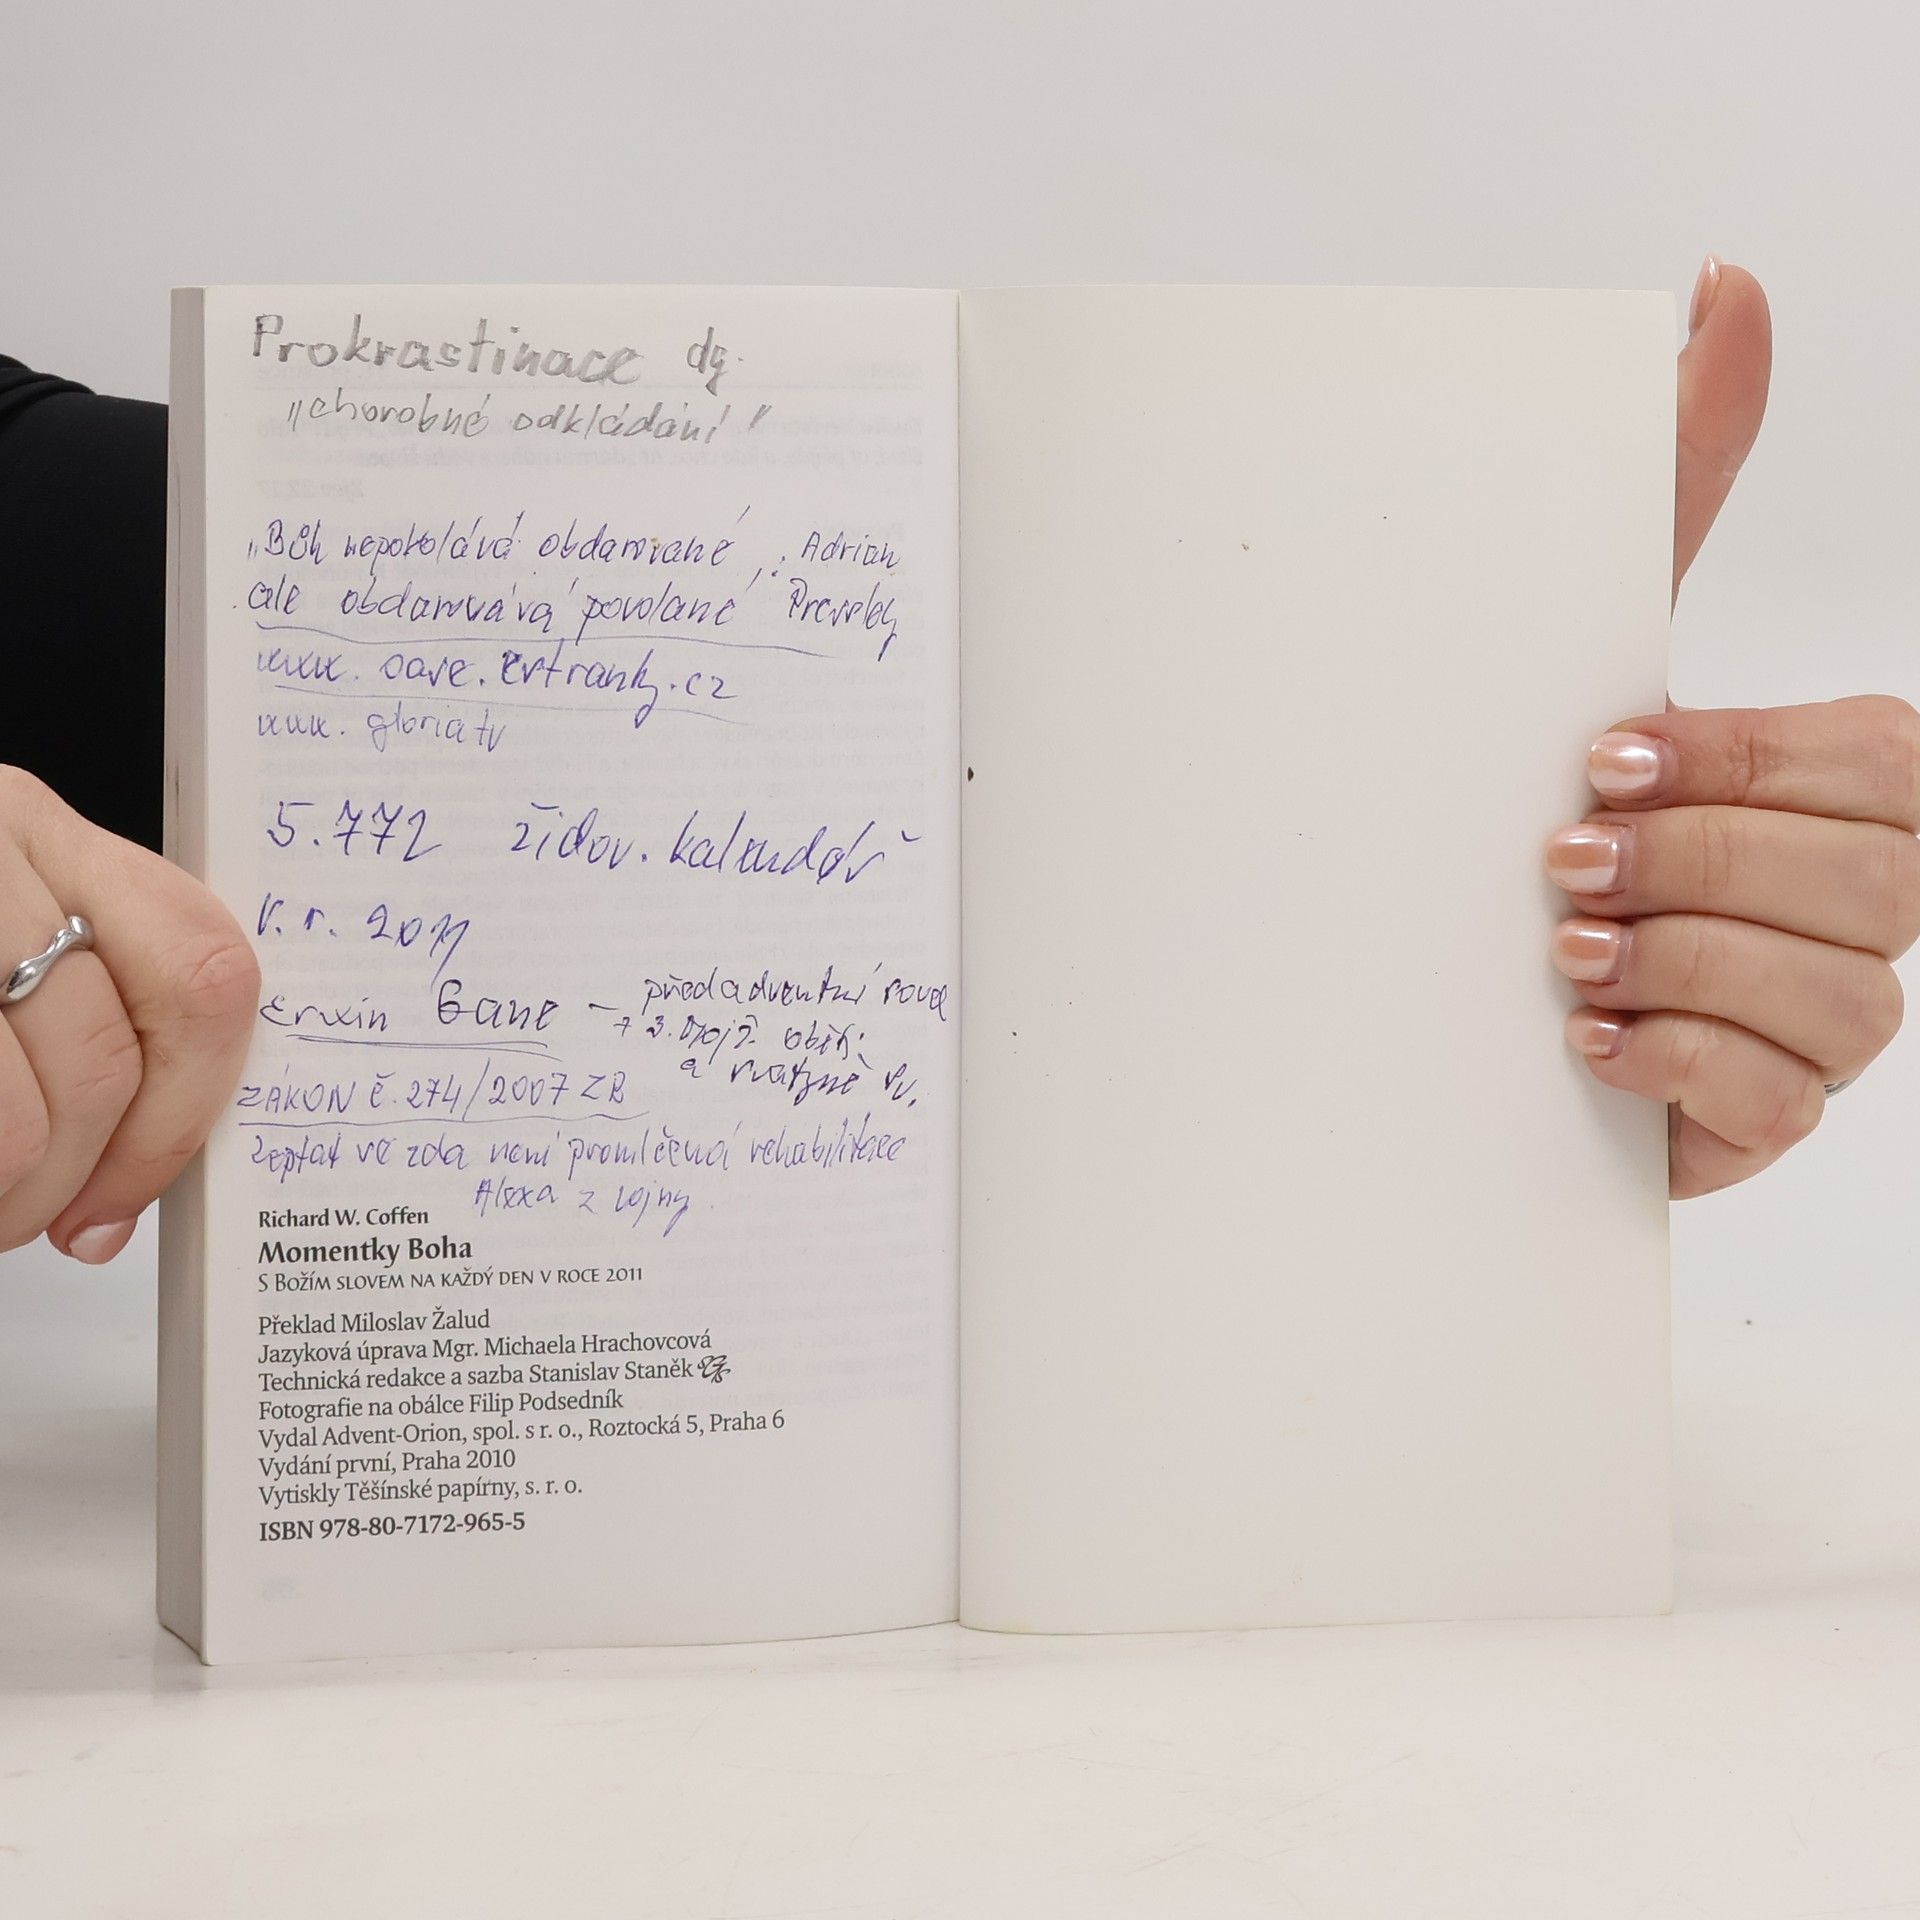 Prokrastinace dg.
„chorobné odkládání"
„Bůh nepovolává obdarované, : Adrian
ale obdarovává povolané
www. .cz
www. gloria tv
5.772 židov. kalendář
V. r. 2011
Erwin Gane – předadventní
+ 3. Mojž.
a
ZÁKON č. 274/2007 ZB
Zeptat se zda není promlčená rehabilitace
z vojny
Richard W. Coffen
Momentky Boha
S Božím slovem na každý den v roce 2011
Překlad Miloslav Žalud
Jazyková úprava Mgr. Michaela Hrachovcová
Technická redakce a sazba Stanislav Staněk
Fotografie na obálce Filip Podsedník
Vydal Advent-Orion, spol. s r. o., Roztocká 5, Praha 6
Vydání první, Praha 2010
Vytiskly Těšínské papírny, s. r. o.
ISBN 978-80-7172-965-5